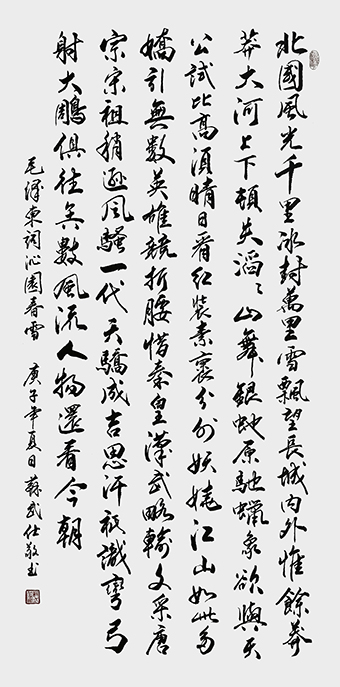 北國風光千里冰封萬里雪飄望長城内外惟餘莽
莽大河上下頓失滔〻山舞銀蛇原馳蠟象欲與天
公試比高須晴日看紅裝素裹分外妖嬈江山如此多
嬌引無數英雄競折腰惜秦皇漢武略輸文采唐
宗宋祖稍遜風騷一代天驕成吉思汗祇識彎弓
射大鵰俱往矣數風流人物還看今朝
毛澤東詞沁園春雪 庚子年夏日蘇武仕敬书